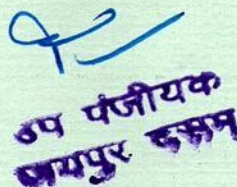 उप पंजीयक
जयपुर दशम